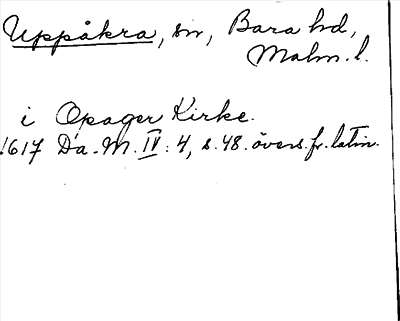 Uppåkra, sn, Bara hd,
Malm. l.
i Opager Kirke.
1617 Da. M. IV: 4, s. 48. övers. fr. latin.